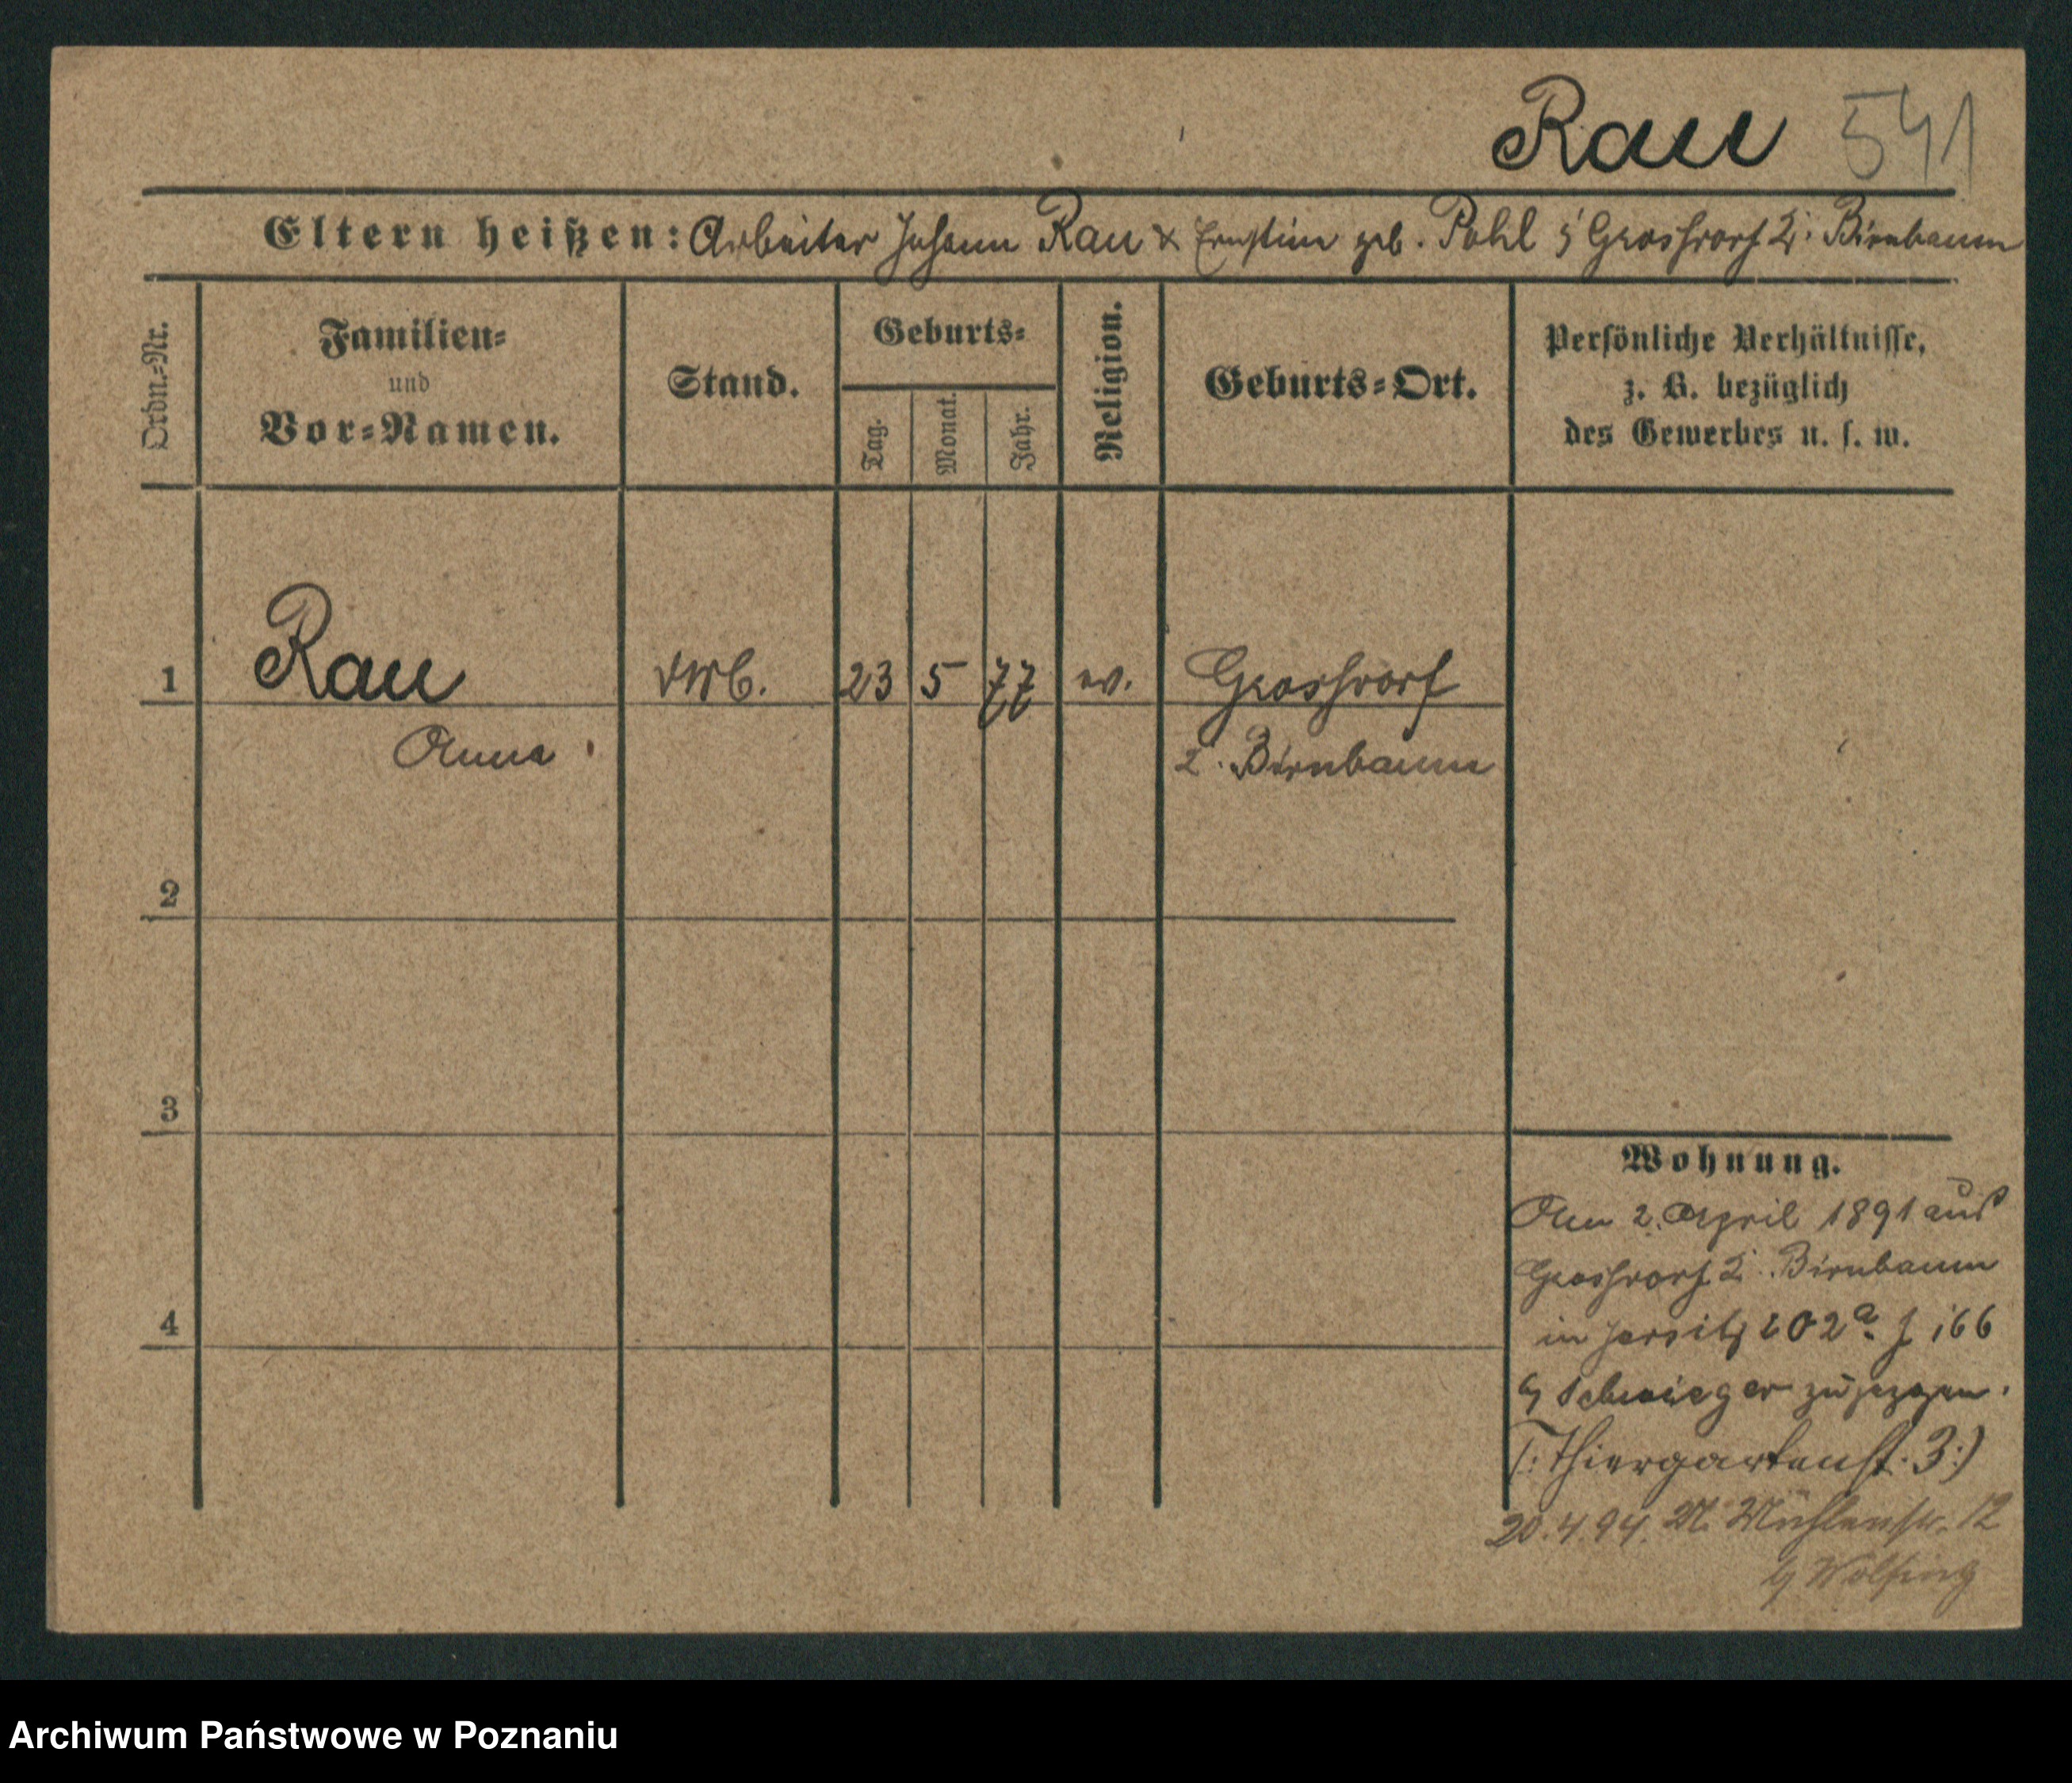 Rau 541
Eltern heißen: Arbeiter Johann Rau & Ernstine geb. Pohl Grossdorf b. Birnbaum
Ordn.=Nr.
Familien=
und
Vor=Namen.
Stand.
Geburts=
Tag.
Monat.
Jahr.
Religion.
Geburts=Ort.
Persönliche Verhältnisse,
z. B. bezüglich
des Gewerbes u. s. w.
1 Rau 23 5 77 ev. Grossdorf
Anna b. Birnbaum
2
3
4
Wohnung.
Am 2. April 1891 aus
Grossdorf b. Birnbaum
in Jersitz 202a 166
Schwieger zugezogen.
(: Thiergartenst. 3 :)
20.4.94. Mühlenstr. 12
Archiwum Państwowe w Poznaniu